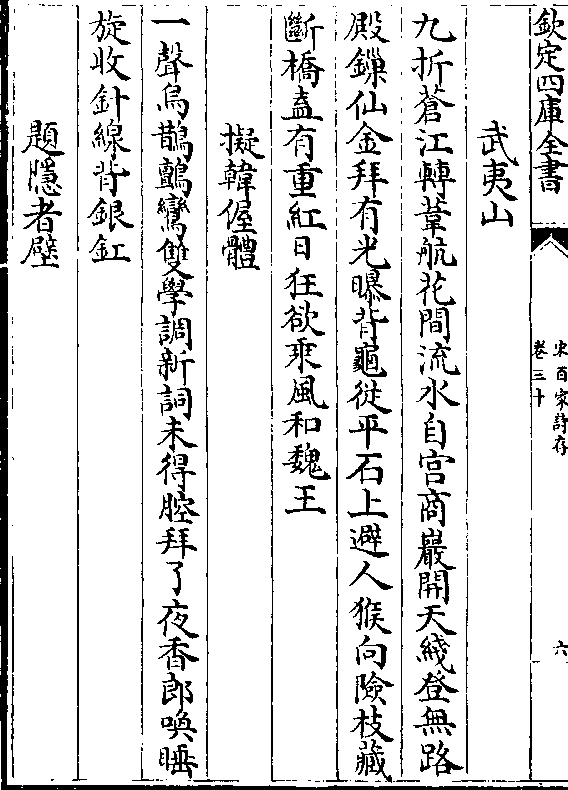 欽定四庫全書
宋百家詩存
卷三十
六
武夷山
九折蒼江轉葦航花間流水自宫商巖開天綫登無路
殿鏁仙金拜有光曝背龜從平石上避人猴向險枝藏
斷橋盍有重紅日狂欲乘風和魏王
擬韓偓體
一聲烏鵲鷓鸞雙學調新詞未得腔拜了夜香郎喚睡
旋收針線背銀釭
題隱者壁